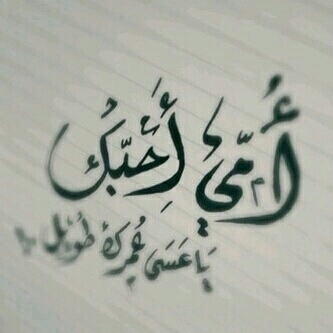 أُمّي أُحبّكِ
يَا عَسَى عُمرك طُويل